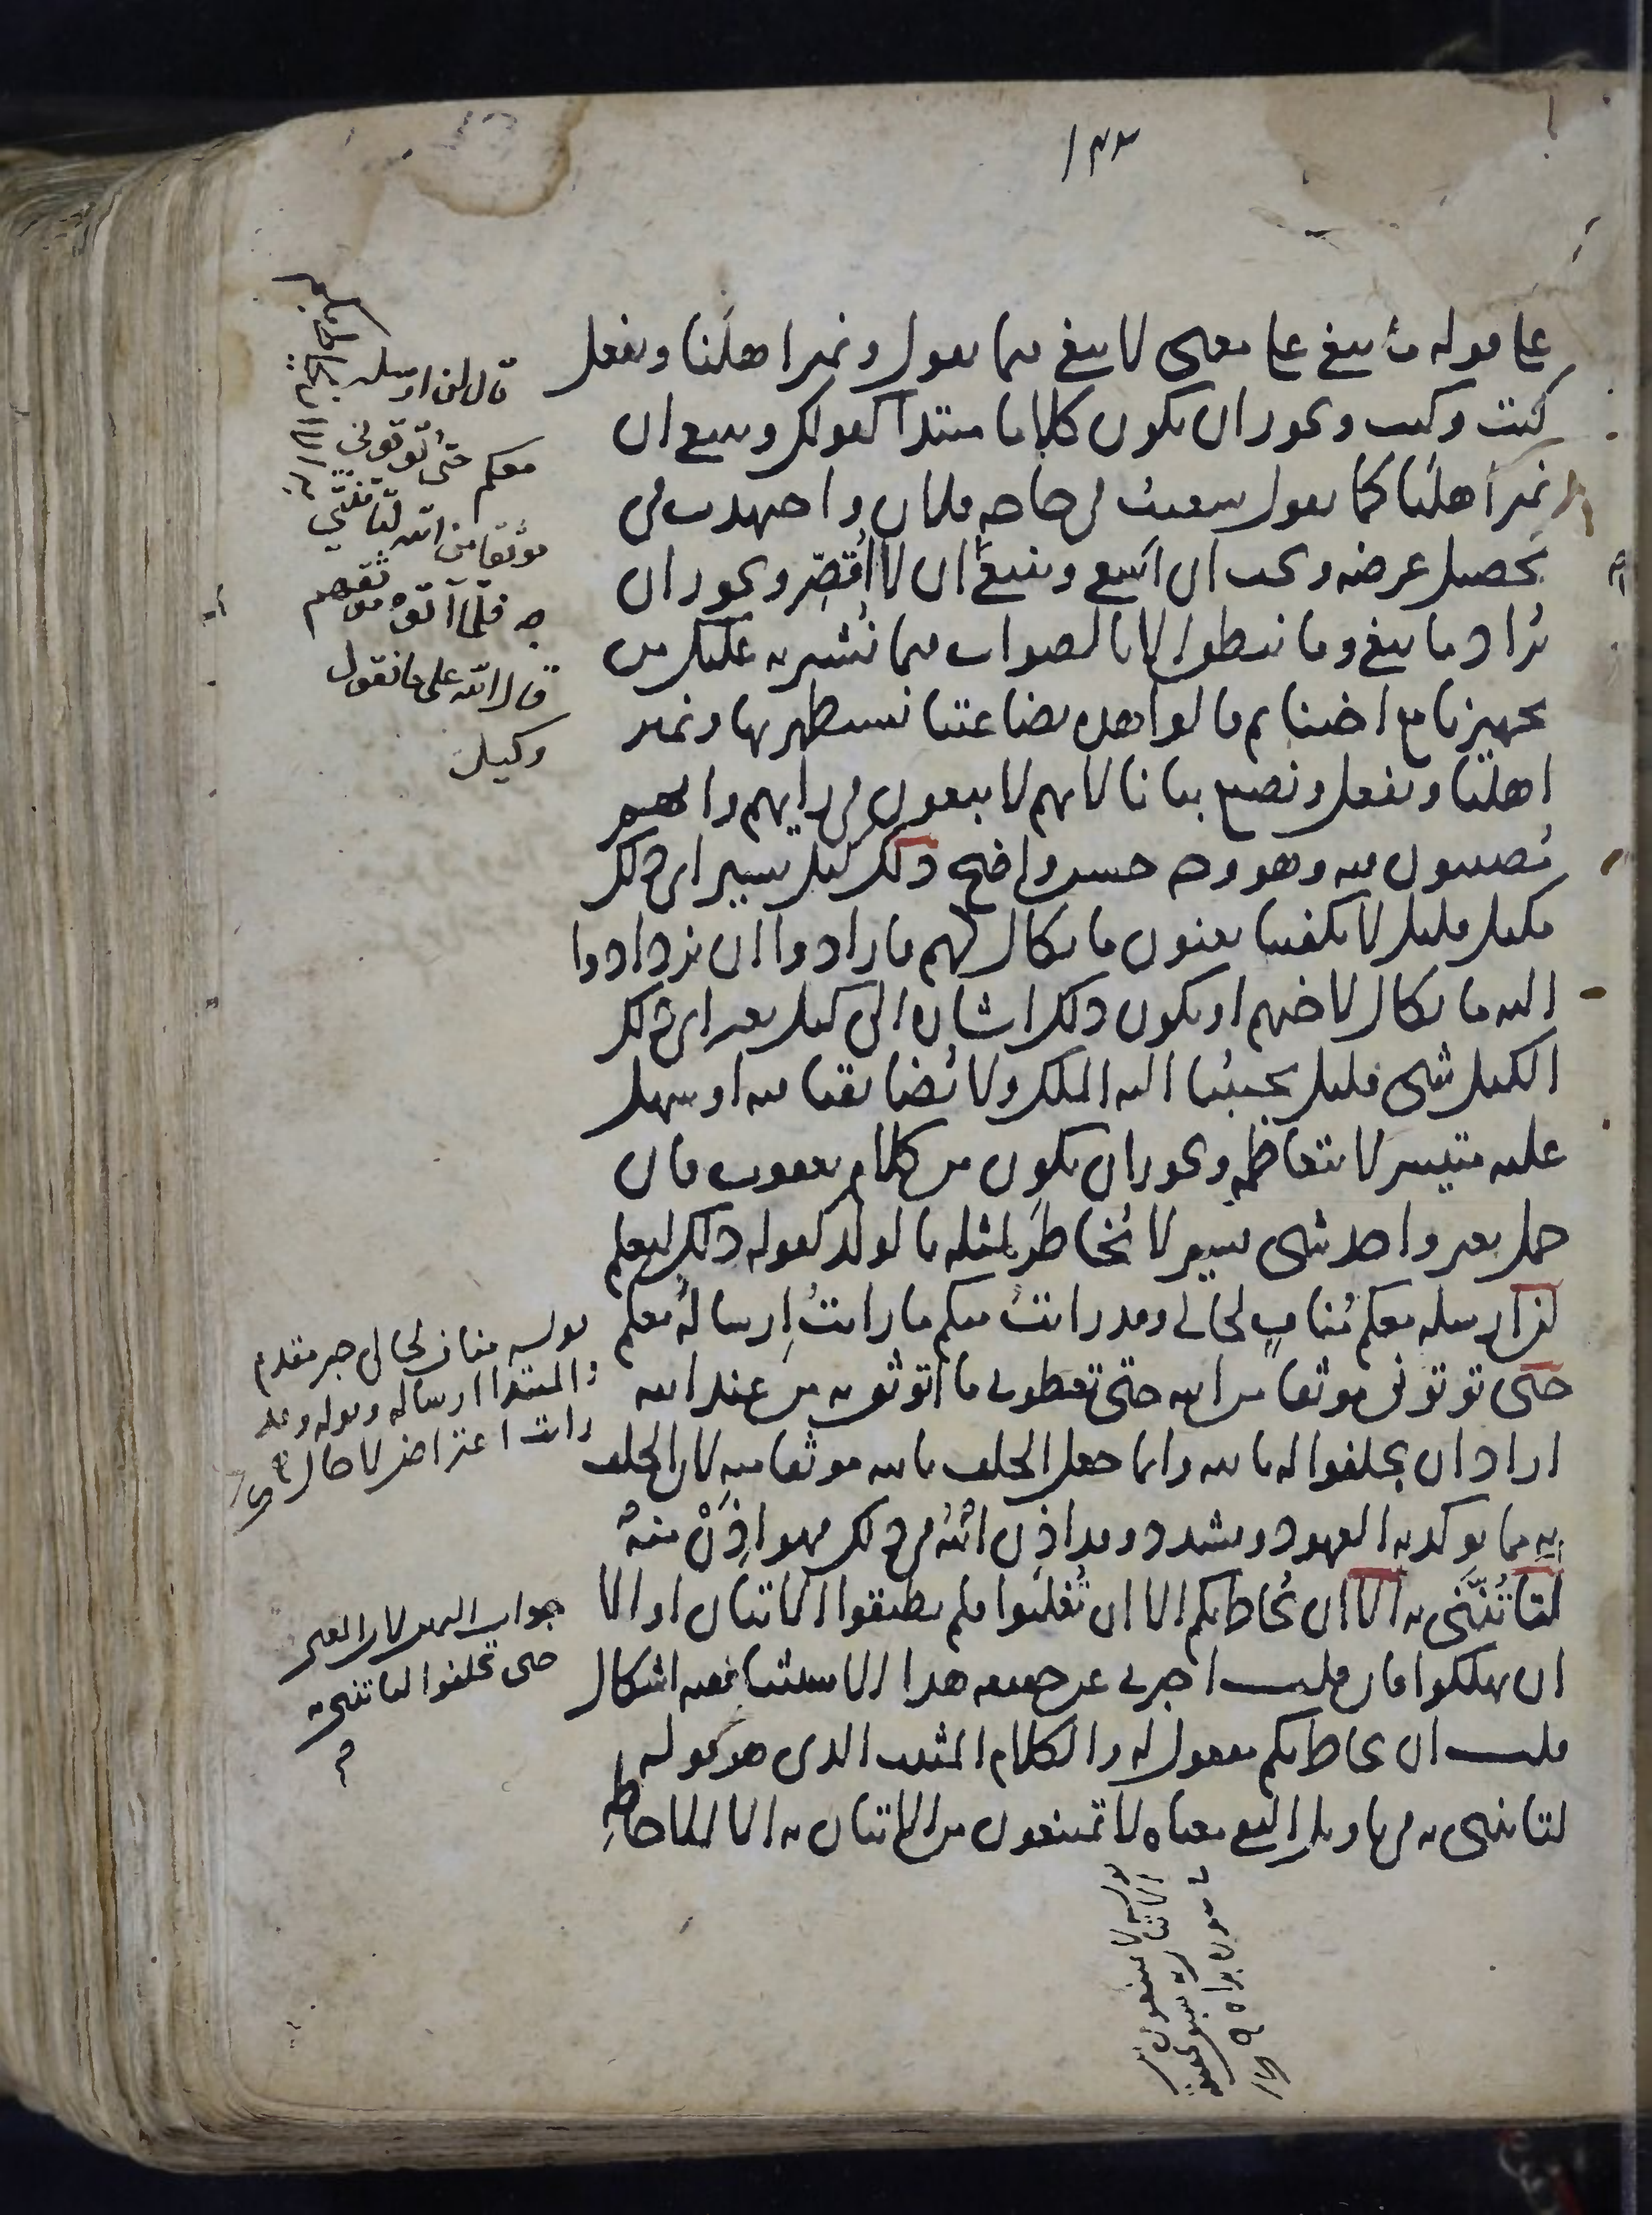 ١٤٣
على قوله ما نبغي على معنى لا نبغي فيما نقول ونمير اهلنا ونفعل
كيت وكيت ويجوز ان يكون كلاما مبتدا كقولك وينبغي ان
نمير اهلنا كما تقول سعيت في حاجة فلان واجتهدت في
تحصيل غرضه ويجب ان اسعى وينبغي ان لا اقصّر ويجوز ان
يراد ما نبغي وما ننطق الا بالصواب فيما نشير به عليك من
تجهيزنا مع اخينا ثم قالوا هذه بضاعتنا نستظهر بها ونمير
اهلنا ونفعل ونصنع بيانا لانهم لا يبغون في رايهم وانهم
مصيبون فيه وهو وجه حسن واضح ذلك كيل يسير اي ذلك
مكيل قليل لا يكفينا يعنون ما يكال لهم فارادوا ان يزدادوا
اليه ما يكال لاخيهم او يكون ذلك اشارة الى كيل بعير اي ذلك
الكيل شي قليل يجيبنا اليه الملك ولا يضايقنا فيه او سهل
عليه متيسر لا يتعاظمه ويجوز ان يكون من كلام يعقوب وان
حمل بعير واحد شي يسير لا يُخاطَر لمثله بالولد كقوله ذلك ليعلم
لن ارسله معكم مُنافٍ لحالي وقد رايتُ منكم ما رايتُ اِرسالُه معكم
حتى توتوني موثقا من الله حتى تعطوني ما اتوثق به من عند الله
اراد ان يحلفوا له بالله وانما جعل الحلف بالله موثقا منه لان الحلف
به مما يوكد به العهود ويشدد وقد اذن الله في ذلك فهو اذنٌ منه
لتاتُنّني به الا ان يحاط بكم الا ان تُغلبوا فلم تطيقوا الاتيان او الا
ان تهلكوا فان قلت اخبرني عن حقيقة هذا الاستثنا ففيه اشكال
قلت ان يحاط بكم مفعول له والكلام المثبت الذي هو قوله
لتاتنني به في تاويل النفي معناه لا تمتنعون من الاتيان به الا للاحاطة
قال لن ارسله
معكم حتى توتوني
موثقا من الله لتاتنني
به فلما آتوه موثقهم
قال الله على ما نقول
وكيل
قوله مناف لحالي خبر مقدم
والمبتدا ارساله وقوله وقد
رايت اعتراض لا حال
جواب اليمين لان المعنى
حتى تحلفوا لتاتنني به
قوله لا تمتنعون من
الاتيان به